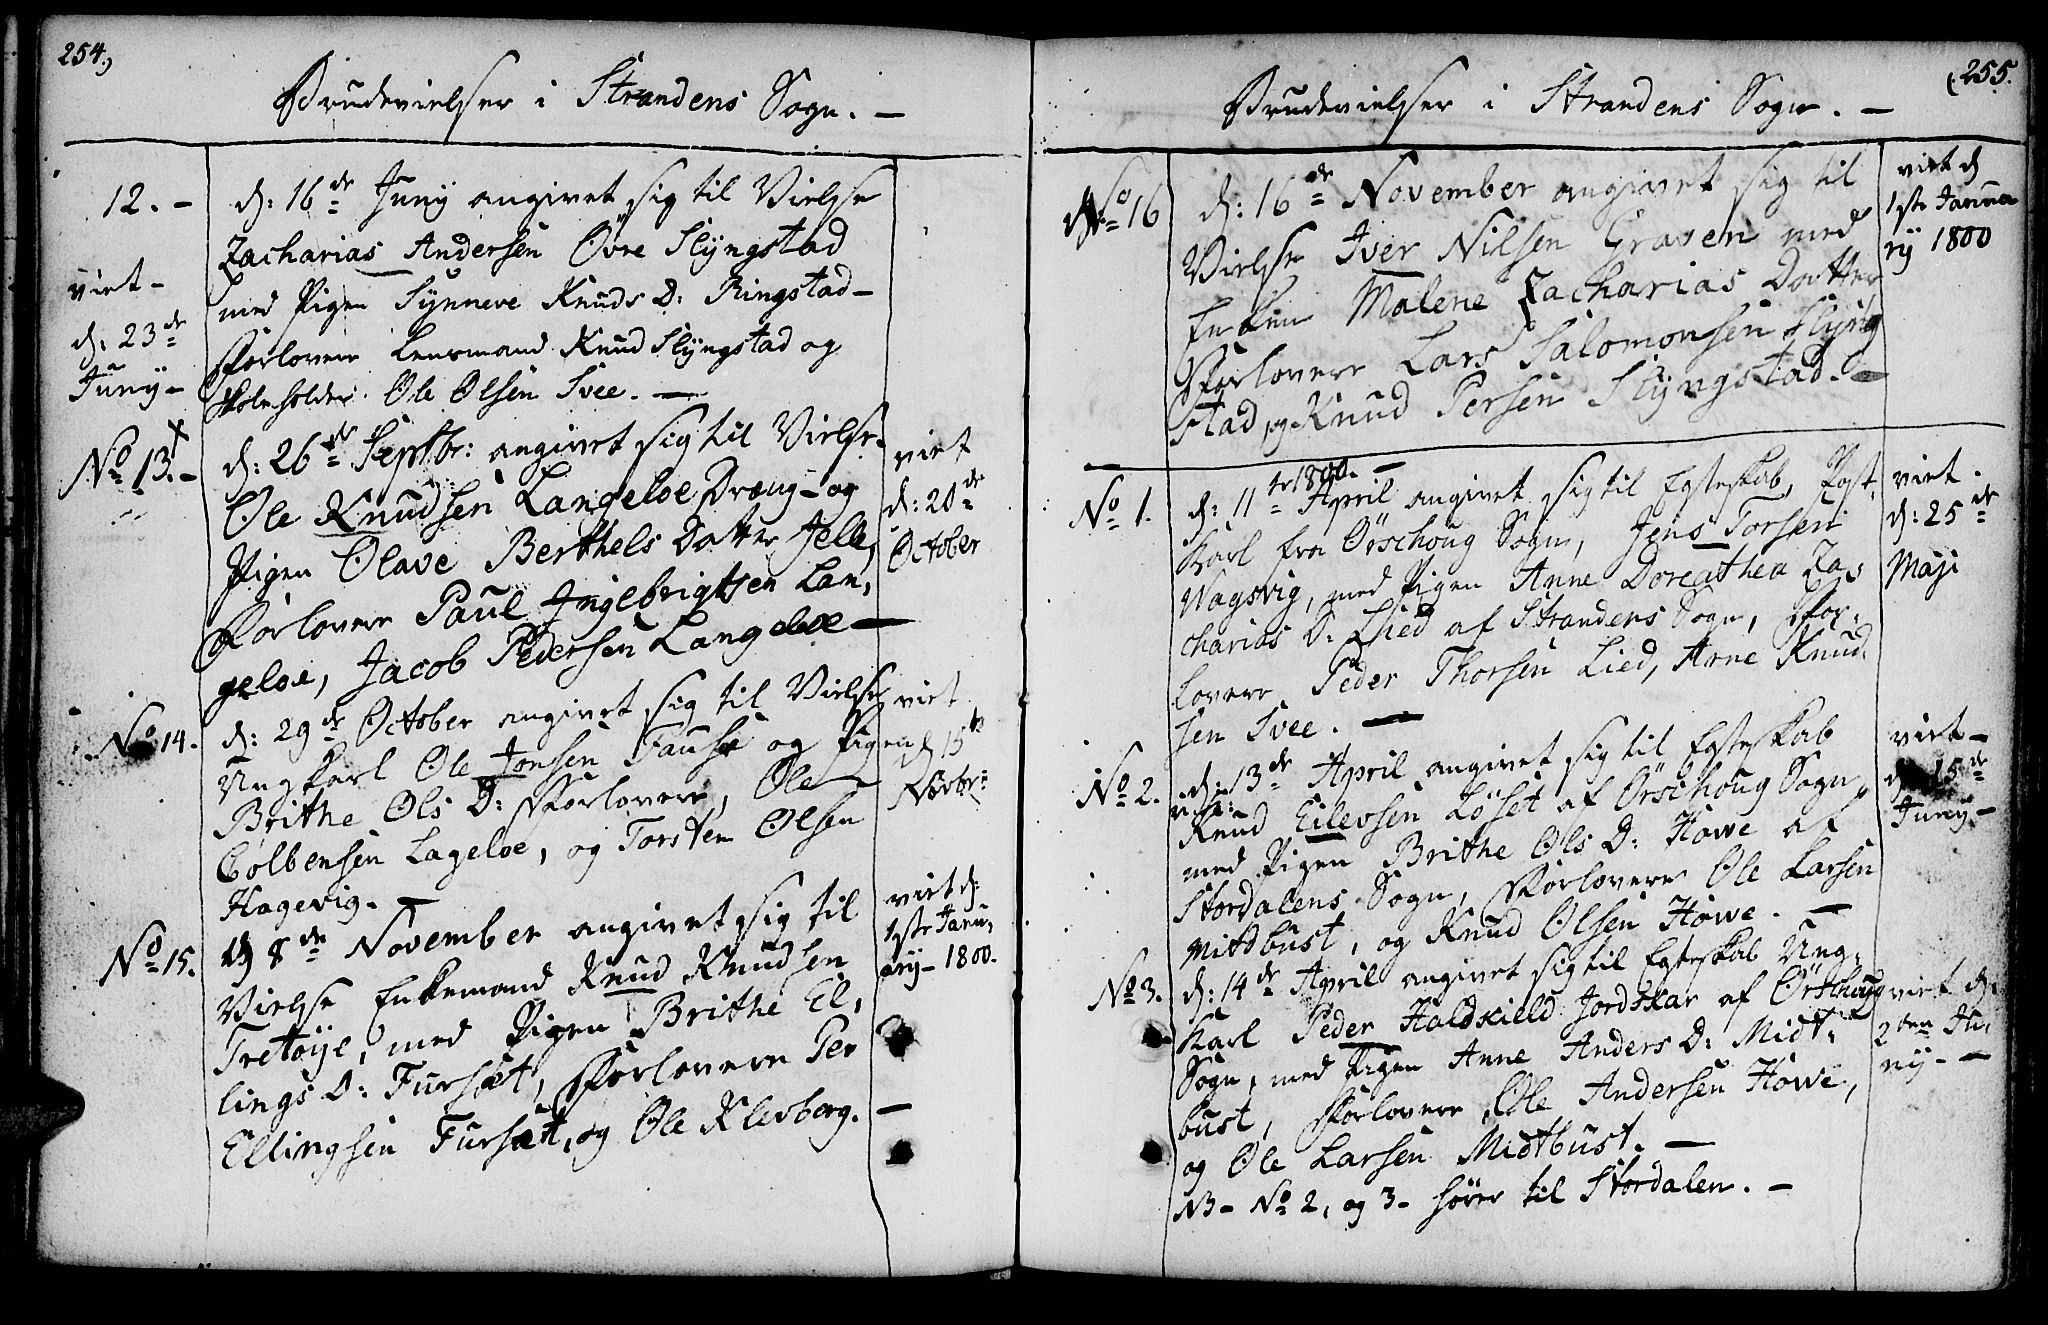 254.)
Brudevielser i Strandens Sogn. —
12. —
d: 16de Juny angivet sig til Vielse
Zacharias Andersen Øvre Slÿngstad
med Pigen Sÿnneve Knuds D: Ringstad —
Forlovere Lensmand Knud Slÿngstad og
Skoleholder Ole Olsen Svee. —
viet —
d: 23de
Junÿ —
No 13. —
d: 26de Septbr: angivet sig til Vielse
Ole Knudsen Langeloe Dreng — og
Pigen Olave Berthels Datter Jelle,
Forlovere Paul Ingebrigtsen Lan,
geloe, Jacob Pedersen Langeloe —
viet
d: 20de
October
No 14.
d: 29de October angivet sig til Vielse
Ungkarl Ole Jonsen Fause og Pigen
Brithe Ols D: Forlovere, Ole
Colbensen Lageloe, og Torsten Olsen
Hagevig. —
viet
d 15de
Novbr:
No 15.
d 8de November angivet sig til
Vielse Enkemand Knud Knudsen
Tretøÿe, med Pigen Brithe El,
lings D: Fursæt, Forlovere Per
Ellingsen Fursæt, og Ole Klevberg. —
viet d:
1ste Janu,
arÿ — 1800.
(255.
Brudevielser i Strandens Sogn. —
No 16
d: 16de November angivet sig til
Vielse Iver Nilsen Graven med
Enken Malene Zacharias Datter
Forlovere Lars Salomonsen Slÿng
stad, og Knud Persen Slÿngstad. —
viet d
1ste Janua
rÿ 1800
1800. —
No 1.
d: 11te April angivet sig til Egteskab,
Karl fra Ørschoug Sogn, Jens Torsen
Wagsvig, med Pigen Anne Doreathea Za,
charias D: Lied af Strandens Sogn, For,
lovere Peder Thorsen Lied, Arne Knud,
sen Svee. —
viet.
d: 25de
Maji
No 2.
d: 13de April angivet sig til Egteskab
Knud Eilevsen Løset af Ørschoug Sogn,
med Pigen Brithe Ols D: Howe af
Stordalens Sogn, Forlovere Ole Larsen
Midtbust, og Knud Olsen Howe. —
viet —
d 15de
Juny —
No 3.
d: 14de April angivet sig til Egteskab Ung,
Karl Peder Haldskield Jordskar af Ørschoug
Sogn, med Pigen Anne Anders D: Midt,
bust, Forlovere Ole Andersen Howe,
og Ole Larsen Midtbust. —
NB — No 2, og 3 — hører til Stordalen. —
viet d:
2den Ju,
ny — —